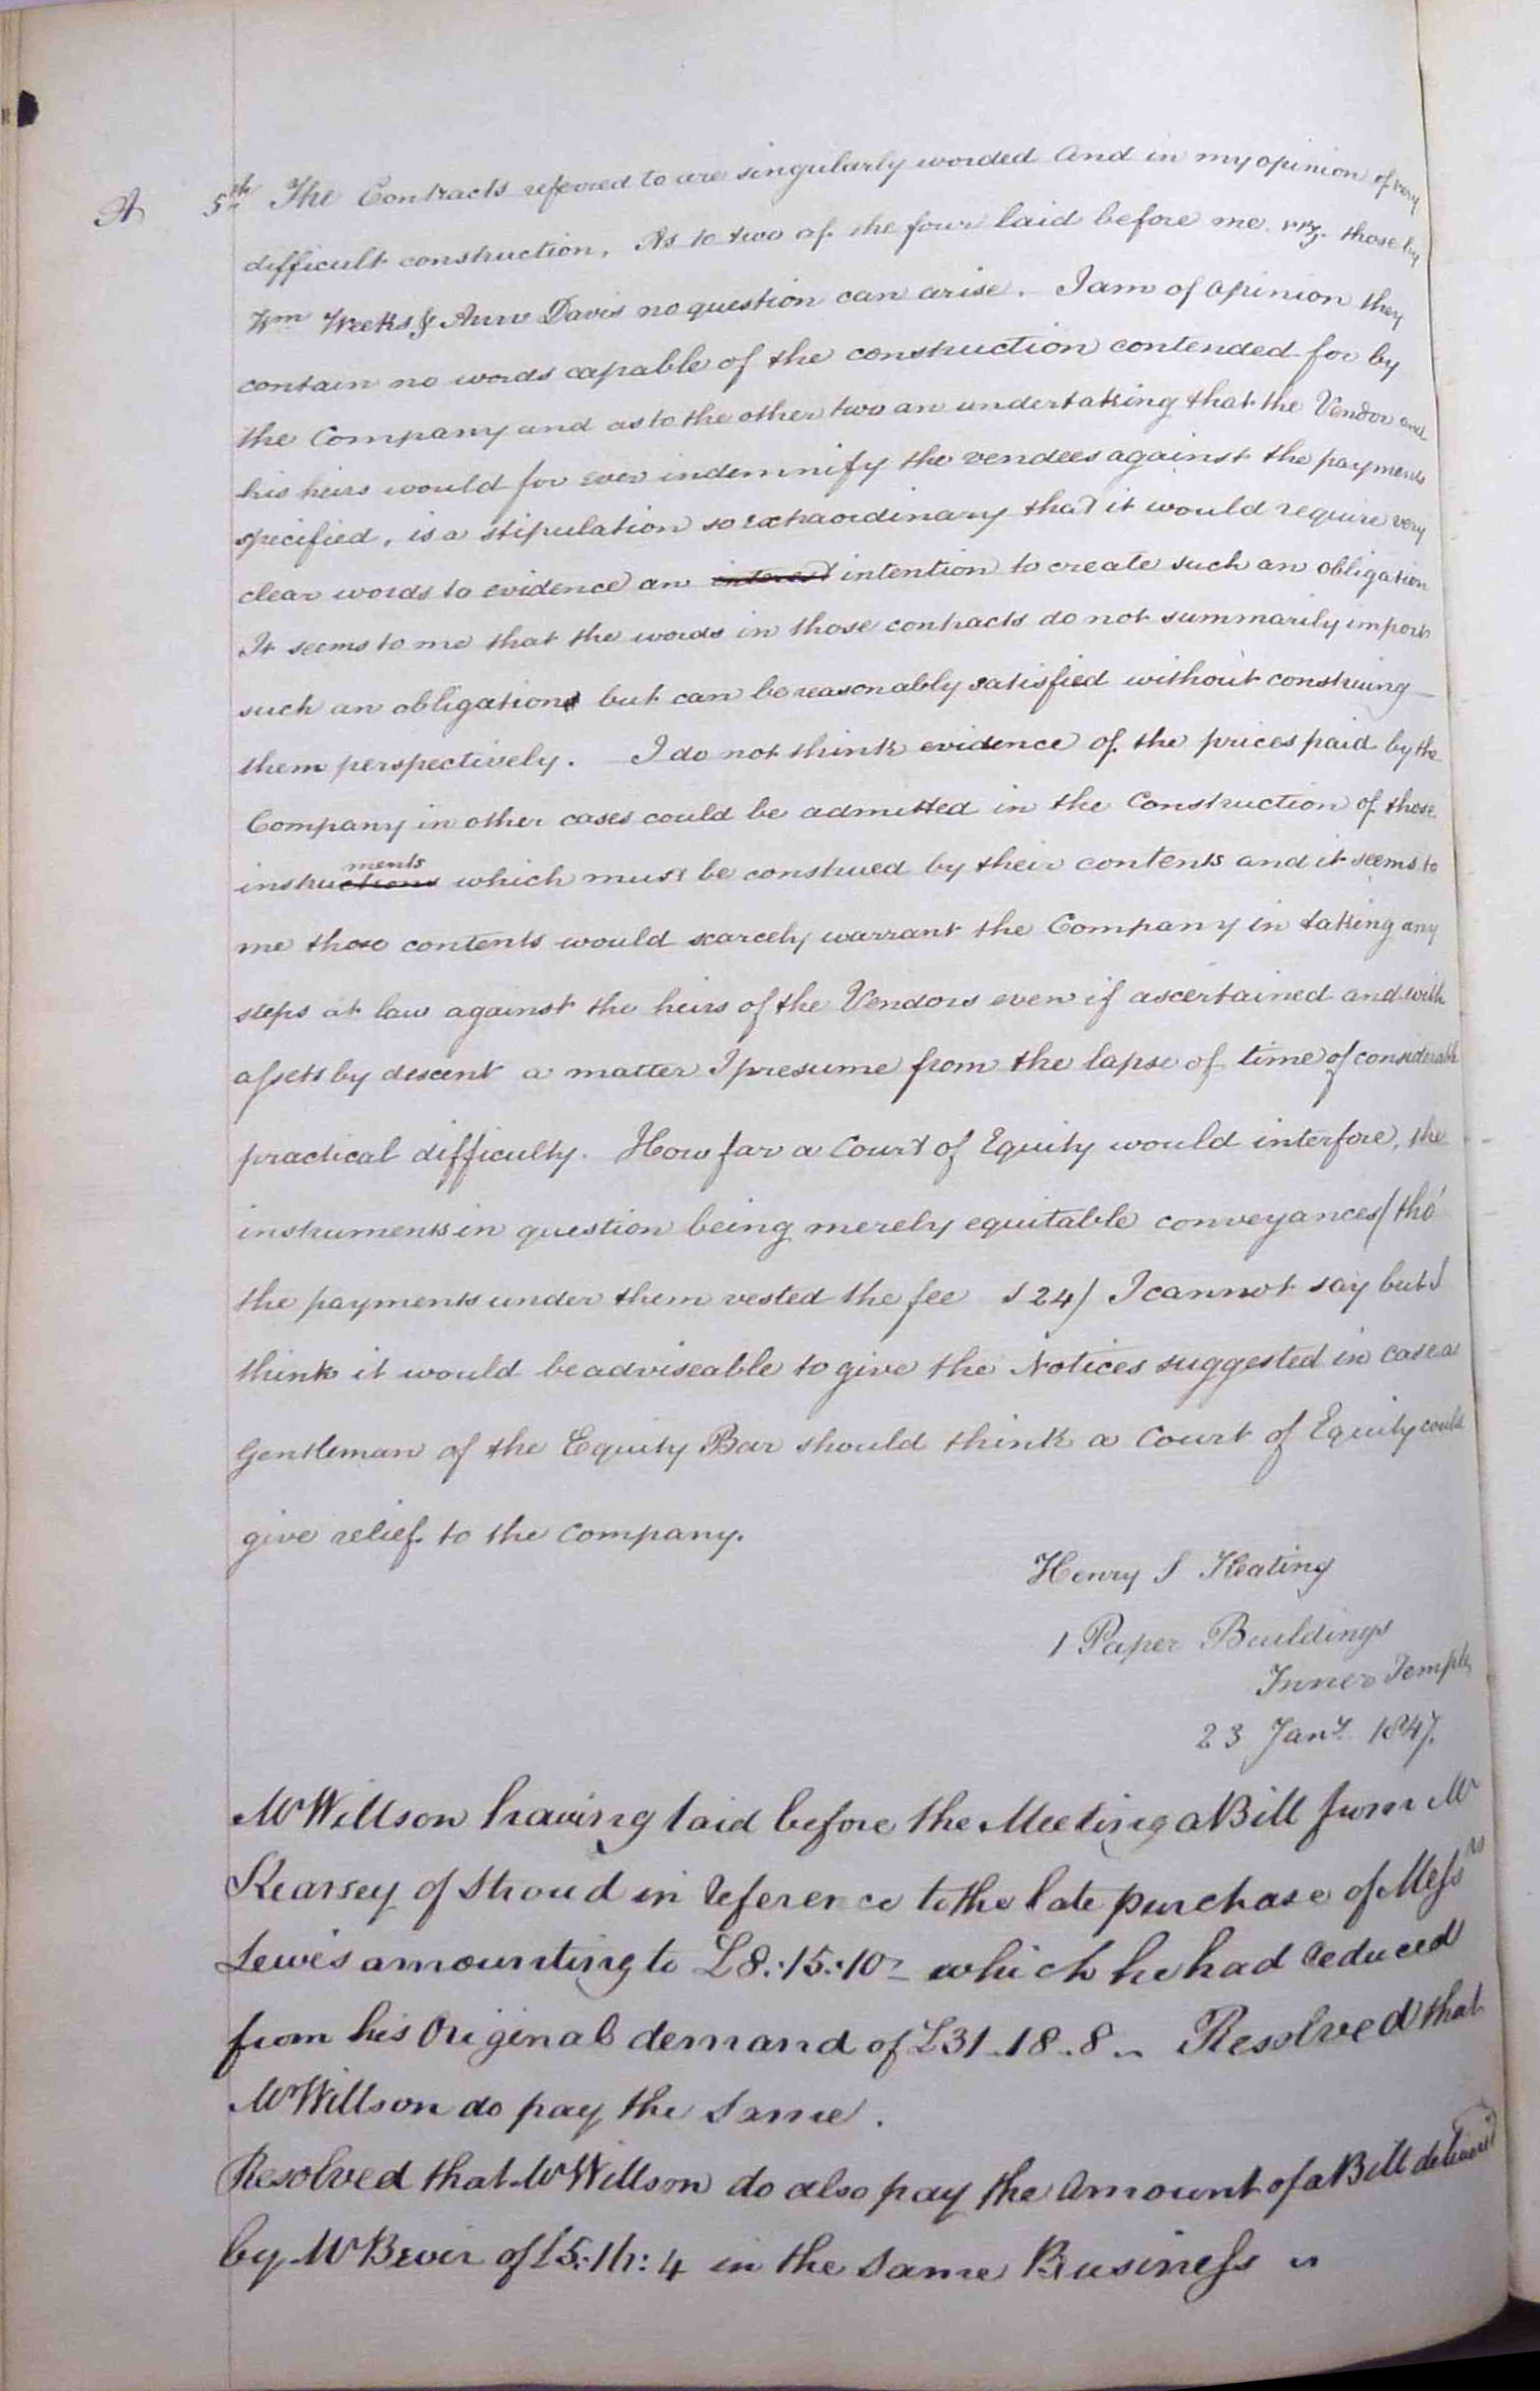 A 5th The Contracts referred to are singularly worded and in my opinion of very
difficult construction, As to two of the four laid before me. viz. those by
Wm Weeks & Ann Davis no question can arise. I am of opinion they
contain no words capable of the construction contended for by
the Company and as to the other two an undertaking that the Vendor and
his heirs would for ever indemnify the vendees against the payments
specified, is a stipulation so extraordinary that it would require very
clear words to evidence an interest intention to create such an obligation
It seems to me that the words in those contracts do not summarily import
such an obligation but can be reasonably satisfied without construing
them perspectively. I do not think evidence of the prices paid by the
Company in other cases could be admitted in the Construction of those
ments
instructions which must be construed by their contents and it seems to
me those contents would scarcely warrant the Company in taking any
steps at law against the heirs of the Vendors even if ascertained and with
assets by descent a matter I presume from the lapse of time of considerable
practical difficulty. How far a Court of Equity would interfere, the
instruments in question being merely equitable conveyances/tho'
the payments under them vested the fee S 24/ I cannot say but I
think it would be adviseable to give the Notices suggested in case a
Gentleman of the Equity Bar should think a Court of Equity could
give relief to the Company.
Henry S Keating
1 Paper Buildings
Inner Temple
23 Jany. 1847.
Mr Willson having laid before the Meeting a Bill from Mr
Kearsey of Stroud in reference to the late purchase of Messrs
Lewis amounting to £8:15:10 - which he had reduced
from his Original demand of £31.18.8 - Resolved that
Mr Willson do pay the Same.
Resolved that Mr Willson do also pay the Amount of a Bill delivered
by Mr Bevir of £5:11:4 in the Same Business